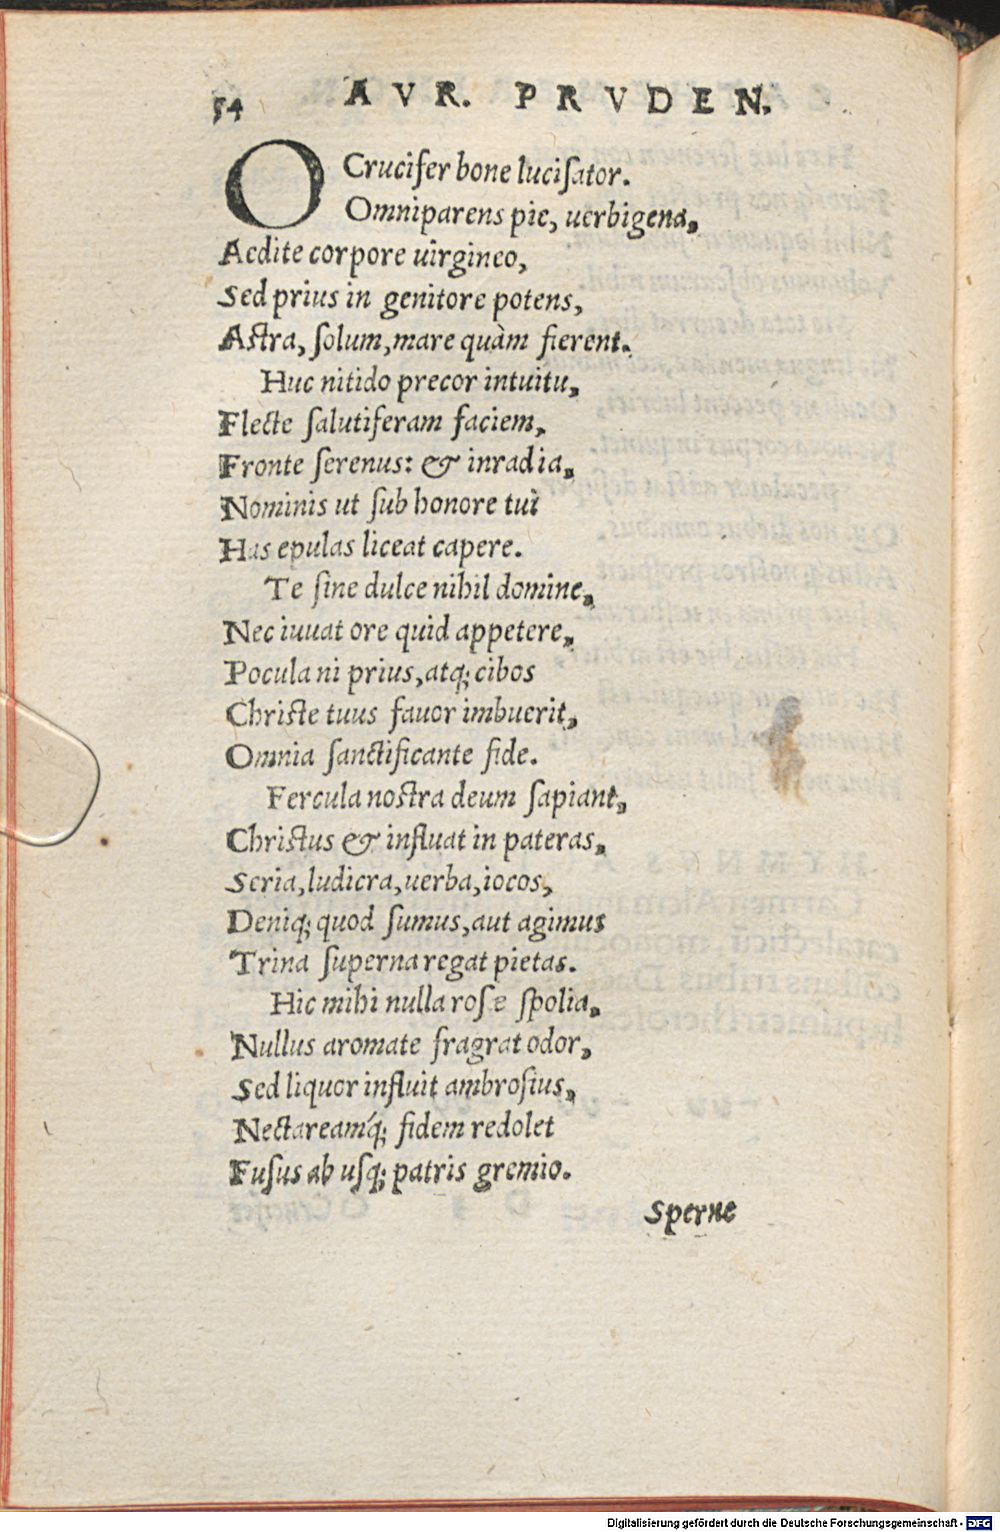 54 AVR. PRVDEN.
O Crucifer bone lucisator.
Omniparens pie, uerbigena,
Aedite corpore uirgineo,
Sed prius in genitore potens,
Astra, solum, mare quàm fierent.
Huc nitido precor intuitu,
Flecte salutiferam faciem,
Fronte serenus: & inradia,
Nominis ut sub honore tui
Has epulas liceat capere.
Te sine dulce nihil domine,
Nec iuuat ore quid appetere,
Pocula ni prius, atq; cibos
Christe tuus fauor imbuerit,
Omnia sanctificante fide.
Fercula nostra deum sapiant,
Christus & influat in pateras,
Seria, ludicra, uerba, iocos,
Deniq; quod sumus, aut agimus
Trina superna regat pietas.
Hic mihi nulla rosæ spolia,
Nullus aromate fragrat odor,
Sed liquor influit ambrosius,
Nectareamq́; fidem redolet
Fusus ab usq; patris gremio.
Sperne
Digitalisierung gefördert durch die Deutsche Forschungsgemeinschaft - DFG